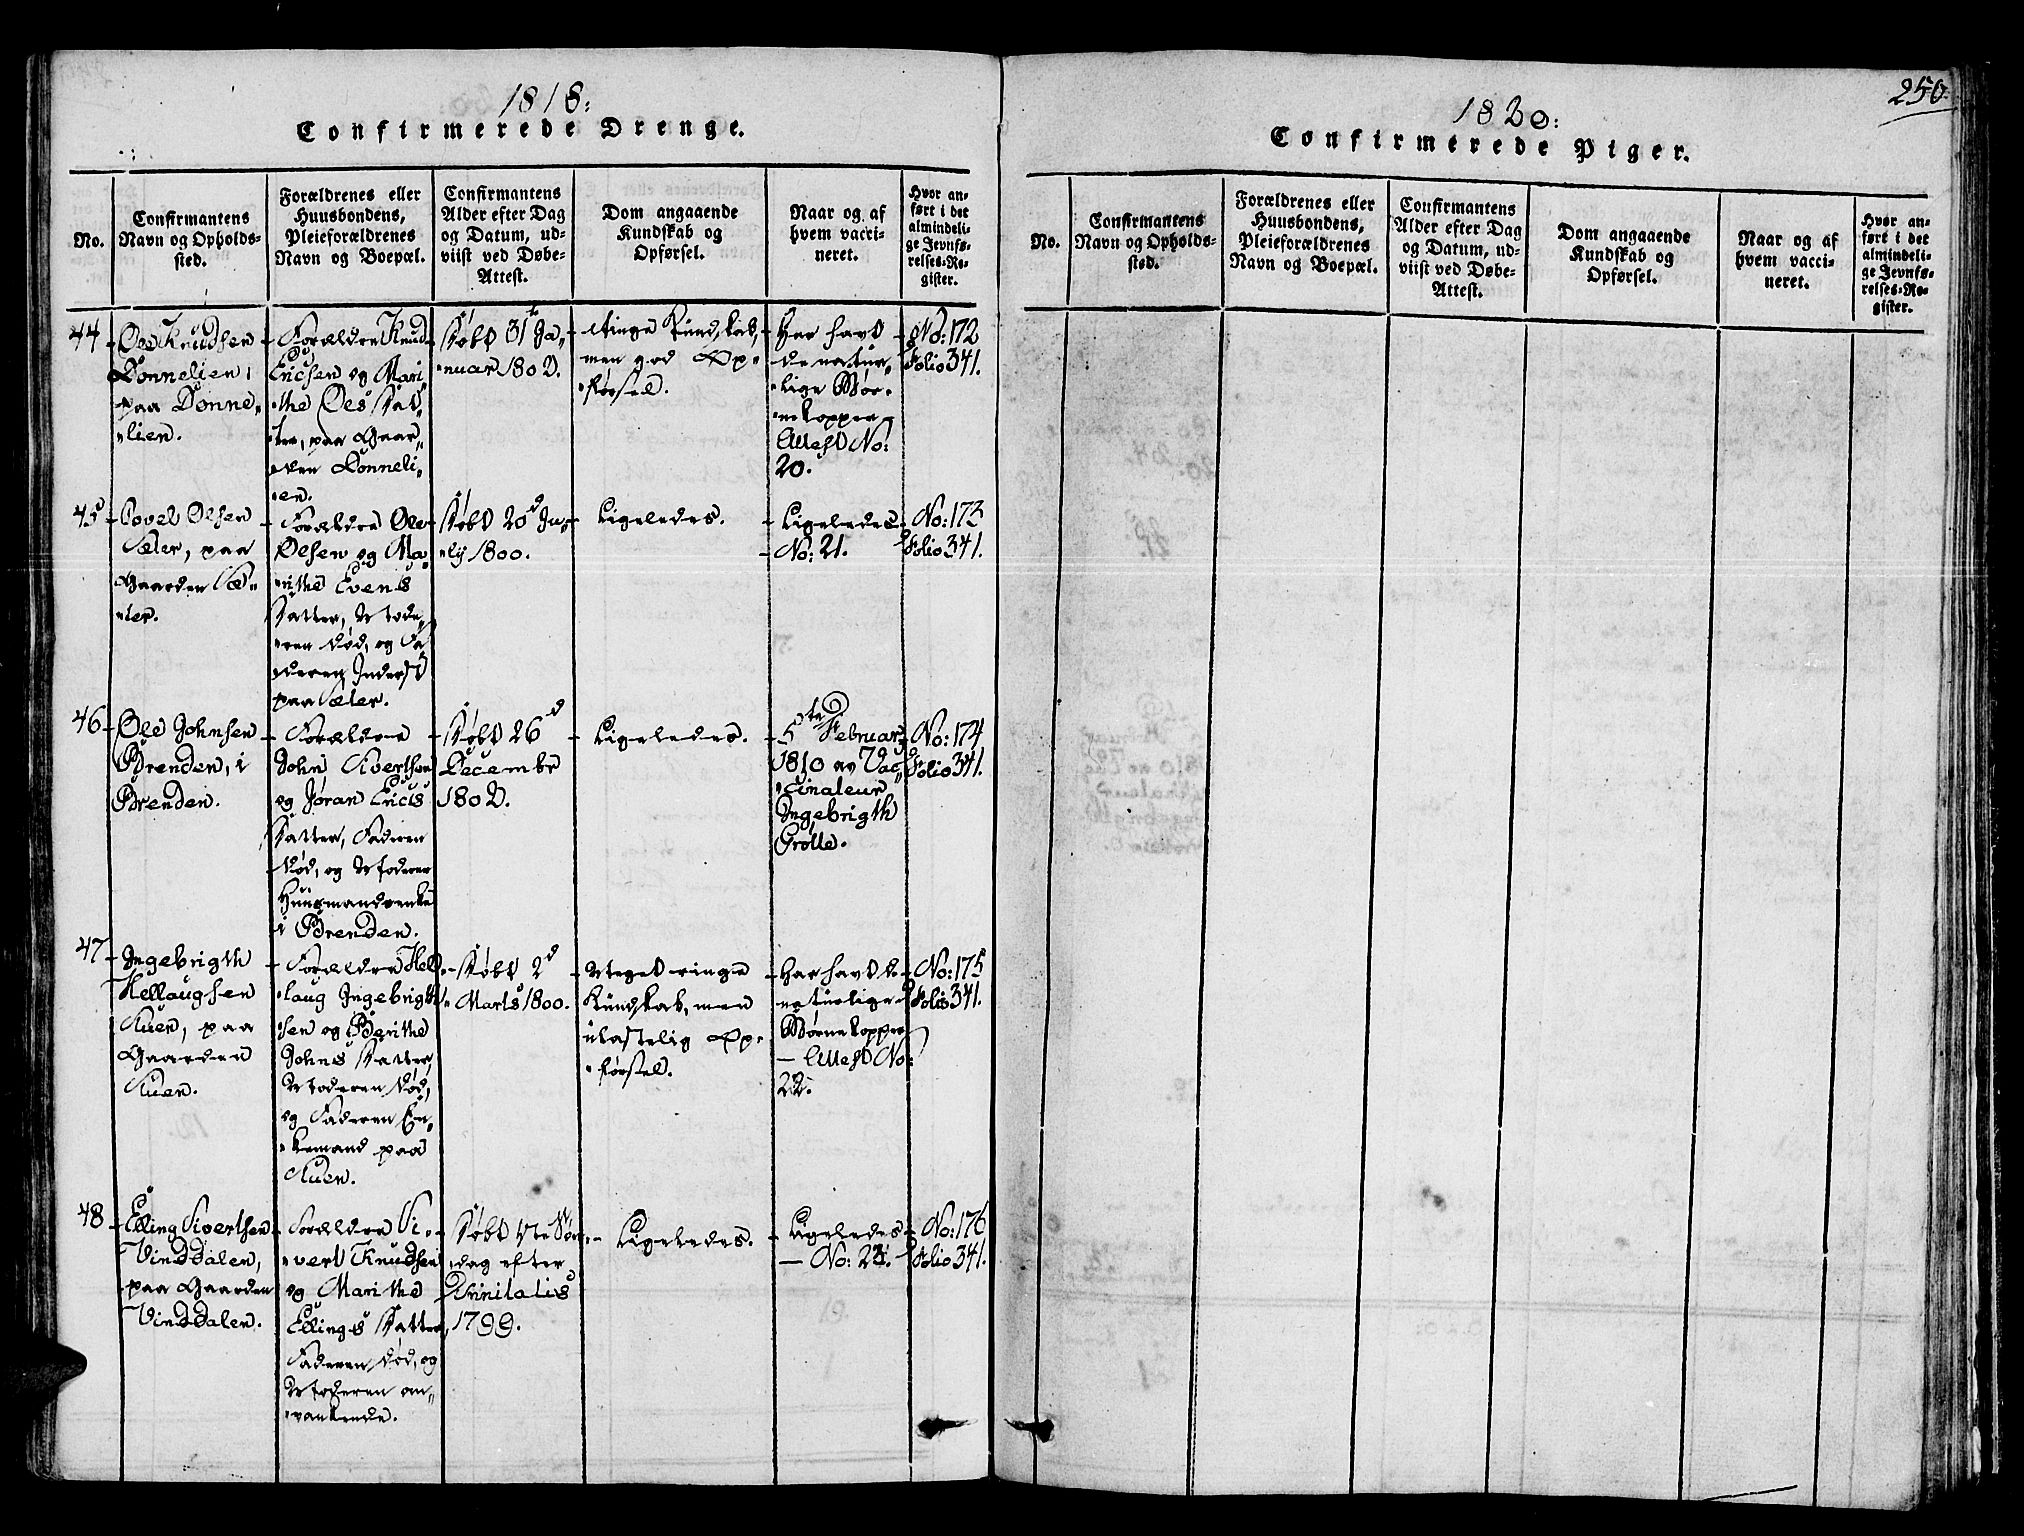 1818:
Confirmerede Drenge.
No.
Confirmantens
Navn og Opholds-
sted.
Forældrenes eller
Huusbondens,
Pleieforældrenes
Navn og Boepæl.
Confirmantens
Alder efter Dag
og Datum, ud-
viist ved Døbe-
Attest.
Dom angaaende
Kundskab og
Opførsel.
Naar og af
hvem vacci-
neret.
Hvor an-
ført i det
almindeli-
ge Jevnfø-
relses-Re-
gister.
44
Ole Knudsen
Lønnelien,
paa Lønne-
lien.
Forældre Knud
Ericsen og Mari-
the Oles Dat-
ter, paa Gaar-
den Lønneli-
en.
Døbt 31te Ja-
nuar 1802.
Ringe Kundskab,
men god Op-
førsel.
Har havt
de natur-
lige Bør-
nekopper
Attest No:
20.
No: 172
Folio 341.
45
Povel Olsen
Sæter, paa
Gaarden Sæ-
ter.
Forældre Ole
Olsen og Ma-
rithe Evens
Datter, Mode-
ren død, og Fa-
deren Inderst
paa Sæter.
Døbt 20d Ju-
lij 1800.
Ligeledes.
Ligeledes
No: 21.
No: 173
Folio 341.
46
Ole Johnsen
Brenden, i
Brenden.
Forældre
John Sivertsen
og Jøran Erics
Datter, Faderen
død, og Moderen
Huusmandsenke
i Brenden.
Døbt 26d
December
1802.
Ligeledes.
5te Februar
1810 av Vac-
cinateur
Ingebrigth
Grølle.
No: 174
Folio 341.
47
Ingebrigth
Hellaugsen
Auen, paa
Gaarden
Auen.
Forældre Hel-
laug Ingebrigth-
sen og Berithe
Johns Datter,
Moderen død,
og Faderen En-
kemand paa
Auen.
Døbt 2d
Marts 1800.
Meget ringe
Kundskab, men
ulastelig Op-
førsel.
Har havt de
naturlige
Børnekopper
— Attest No:
22.
No: 175
Folio 341.
48
Elling Sivertsen
Vinddalen,
paa Gaarden
Vinddalen.
Forældre Si-
vert Knudsen
og Marithe
Ellings Datter,
Faderen død, og
Moderen om-
vankende.
Døbt Søn-
dag efter
Trinitatis
1799.
Ligeledes.
Ligeledes
— No: 23.
No: 176
Folio 341.
250.
1820:
Confirmerede Piger.
No.
Confirmantens
Navn og Opholds-
sted.
Forældrenes eller
Huusbondens,
Pleieforældrenes
Navn og Boepæl.
Confirmantens
Alder efter Dag
og Datum, ud-
viist ved Døbe-
Attest.
Dom angaaende
Kundskab og
Opførsel.
Naar og af
hvem vacci-
neret.
Hvor an-
ført i det
almindeli-
ge Jevnfø-
relses-Re-
gister.